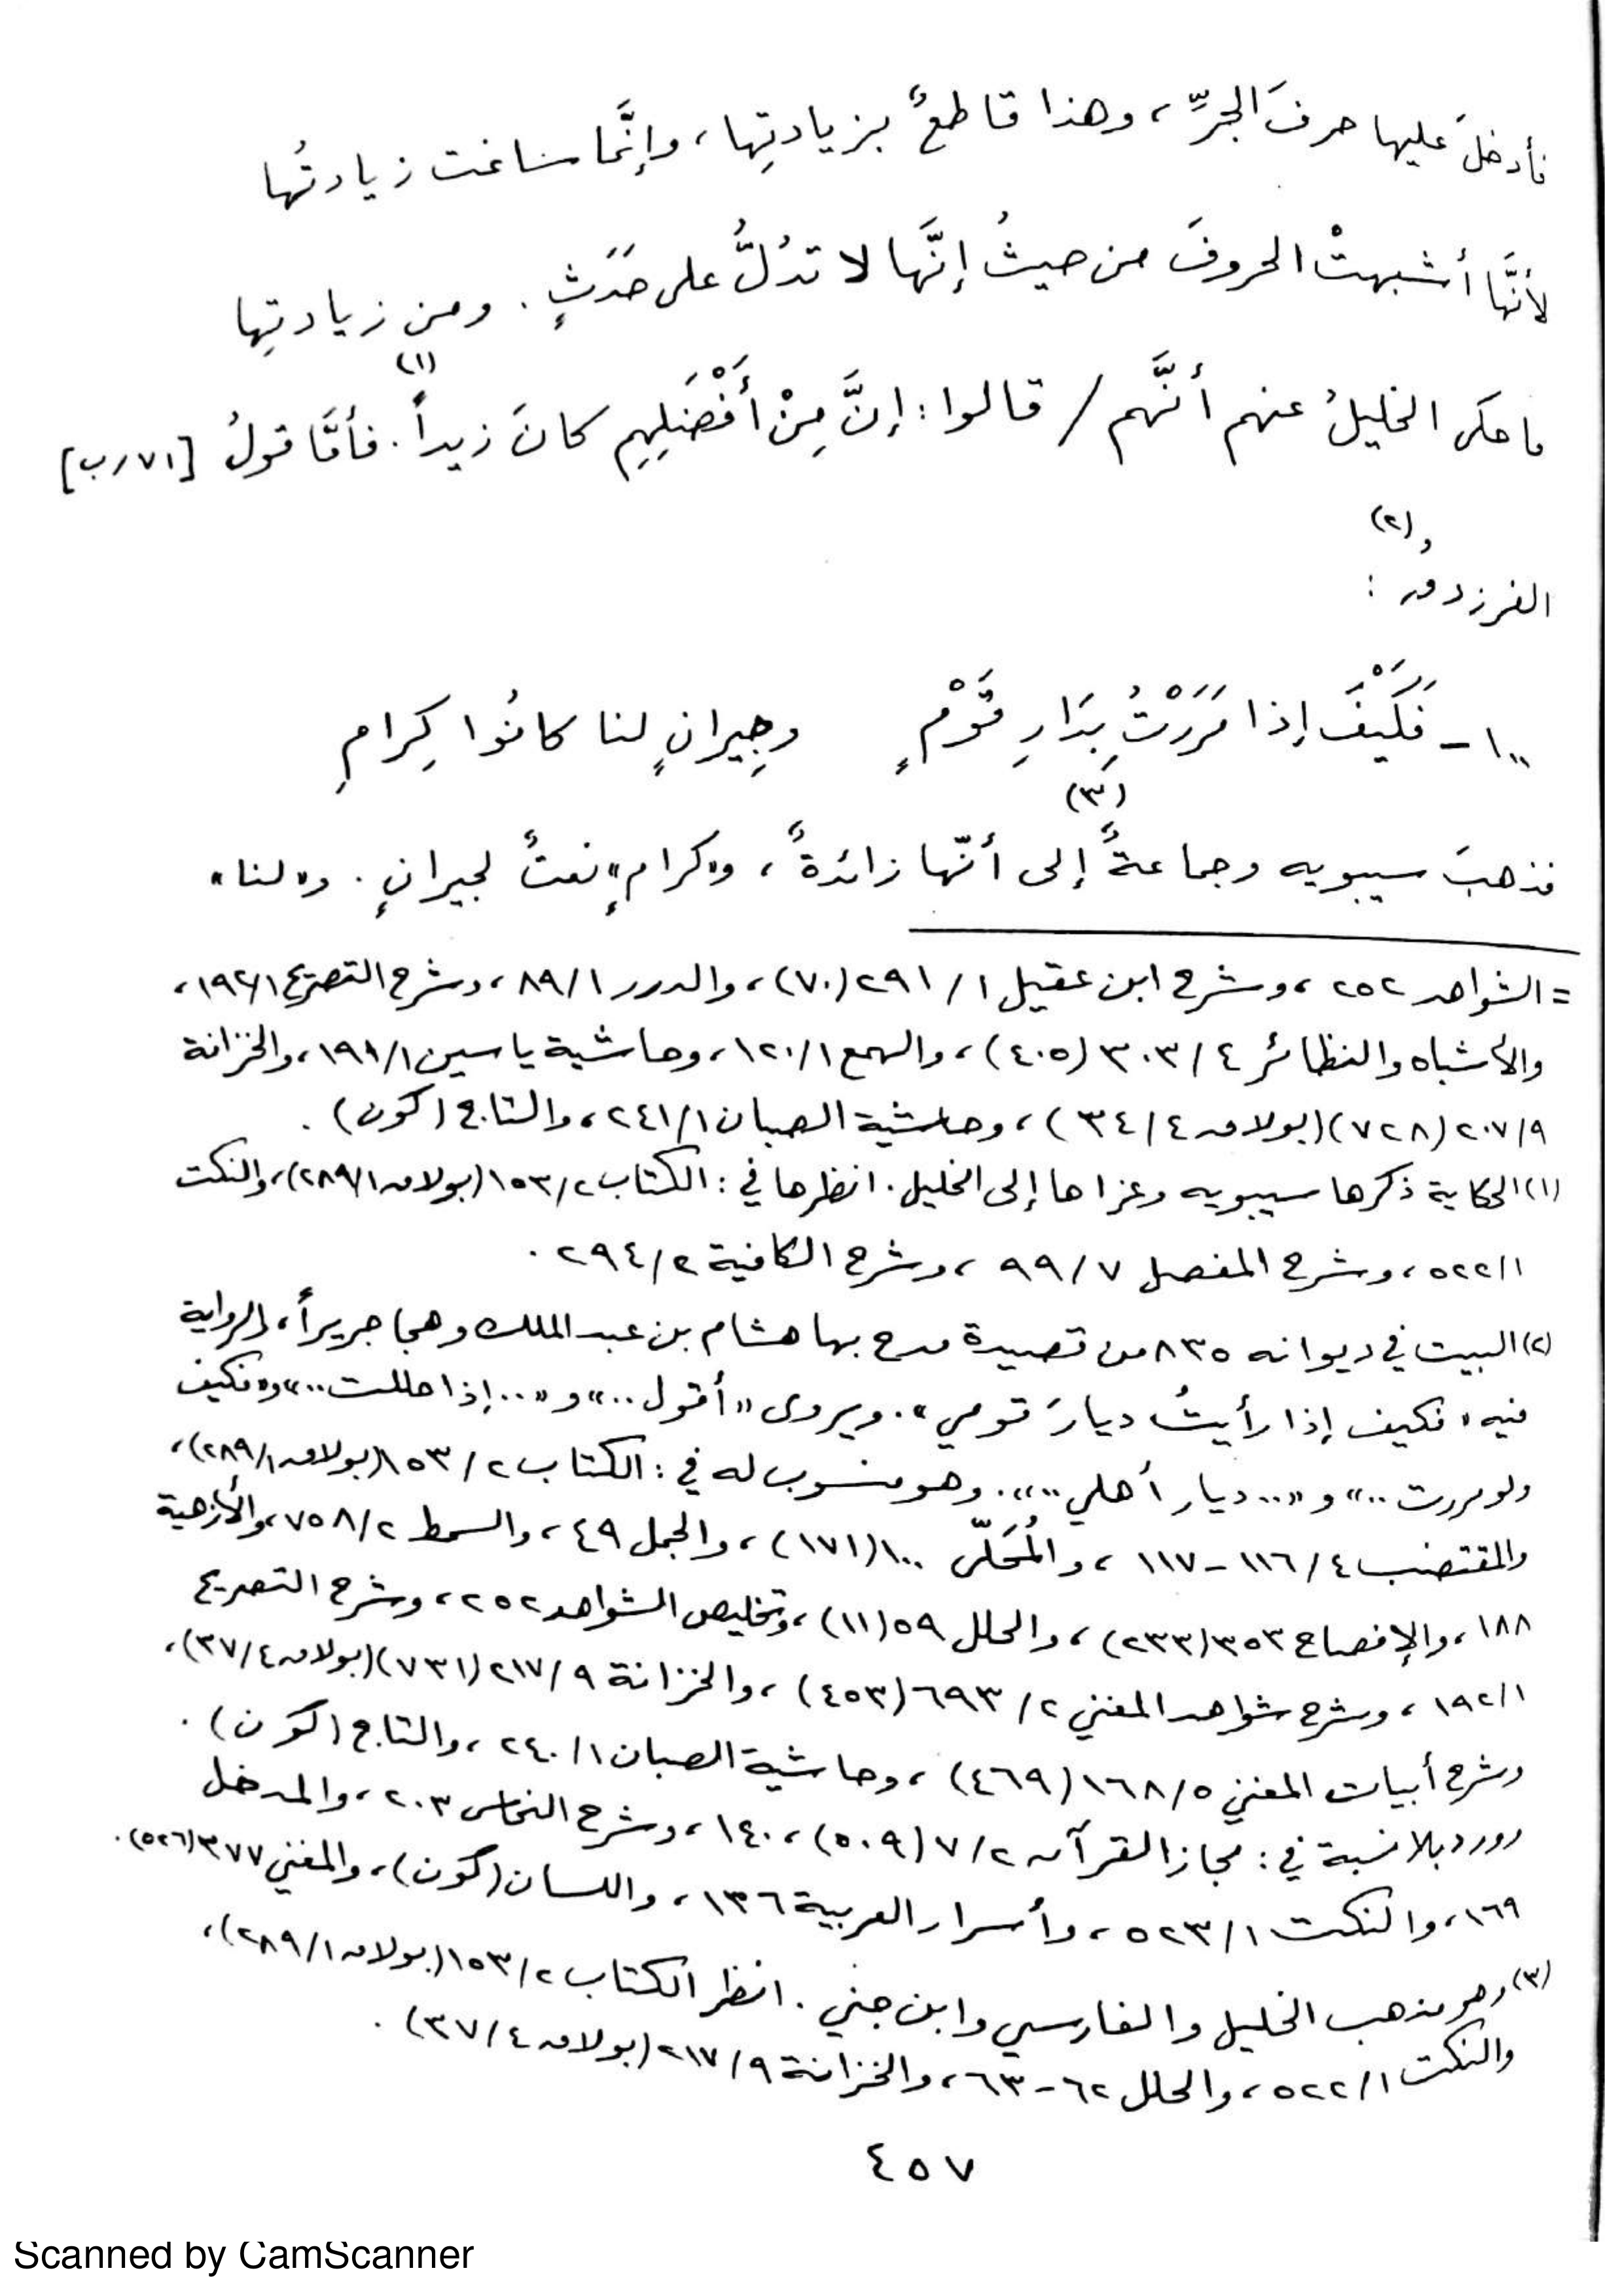 فأدخلَ عليها حرفَ الجرِّ، وهذا قاطعٌ بزيادتِها، وإنَّما ساغت زيادتُها
لأنَّها أشبهتْ الحروفَ من حيثُ إنَّها لا تدُلُّ على حَدَثٍ. ومن زيادتِها
ما حكى الخليلُ عنهم أنَّهم / قالوا: إنَّ مِنْ أَفْضَلِهِم كانَ زيداً(١). فأمَّا قولُ [٧١/ب]
الفرزدقِ(٢):
١٠٠ـ فَكَيْفَ إذا مَرَرْتُ بِدَارِ قَوْمٍ وجِيرانٍ لنا كانُوا كِرامِ
فذهبَ سيبويه وجماعةٌ(٣) إلى أنّها زائدةٌ، و«كرامٍ» نعتٌ لجيرانٍ. و«لنا»
= الشواهد ٢٥٢، وشرح ابن عقيل ١/ ٢٩١ (٧٠)، والدرر ١/ ٨٩، وشرح التصريح ١/ ١٩٢،
والأشباه والنظائر ٤/ ٣٠٣ (٤٠٥)، والهمع ١/ ١٢٠، وحاشية ياسين ١/ ١٩١، والخزانة
٩/ ٢٠٧ (٧٢٨) (بولاق ٤/ ٣٤)، وحاشية الصبان ١/ ٢٤١، والتاج (كون).
(١) الحكاية ذكرها سيبويه وعزاها إلى الخليل. انظرها في: الكتاب ٢/ ١٥٣ (بولاق ١/ ٢٨٩)، والنكت
١/ ٥٢٢، وشرح المفصل ٧/ ٩٩، وشرح الكافية ٢/ ٢٩٤.
(٢) البيت في ديوانه ٨٣٥ من قصيدة مدح بها هشام بن عبد الملك وهجا جريراً، والرواية
فيه «فكيف إذا رأيتُ ديارَ قومي». ويروى «أقول..» و «..إذا حللت..» و«فكيف
ولو مررت..» و «..ديار أهلي..». وهو منسوب له في: الكتاب ٢/ ١٥٣ (بولاق ١/ ٢٨٩)،
والمقتضب ٤/ ١١٦ - ١١٧، والمُحَلّى ١٠٠ (١٧١)، والجمل ٤٩، والسمط ٢/ ٧٥٨، والأزهية
١٨٨، والإفصاح ٣٥٣ (٢٣٣)، والحلل ٥٩ (١١)، وتخليص الشواهد ٢٥٢، وشرح التصريح
١/ ١٩٢، وشرح شواهد المغني ٢/ ٦٩٣ (٤٥٣)، والخزانة ٩/ ٢١٧ (٧٣١) (بولاق ٤/ ٣٧)،
وشرح أبيات المغني ٥/ ١٦٨ (٤٦٩)، وحاشية الصبان ١/ ٢٤٠، والتاج (كون).
وورد بلا نسبة في: مجاز القرآن ٢/ ٧ (٥٠٩)، ١٤٠، وشرح النحاس ٢٠٣، والمدخل
١٦٩، والنكت ١/ ٥٢٣، وأسرار العربية ١٣٦، واللسان (كون)، والمغني ٣٧٧ (٥٢٦).
(٣) وهو مذهب الخليل والفارسي وابن جني. انظر الكتاب ٢/ ١٥٣ (بولاق ١/ ٢٨٩)،
والنكت ١/ ٥٢٢، والحلل ٦٢ - ٦٣، والخزانة ٩/ ٢١٧ (بولاق ٤/ ٣٧).
٤٥٧
Scanned by CamScanner